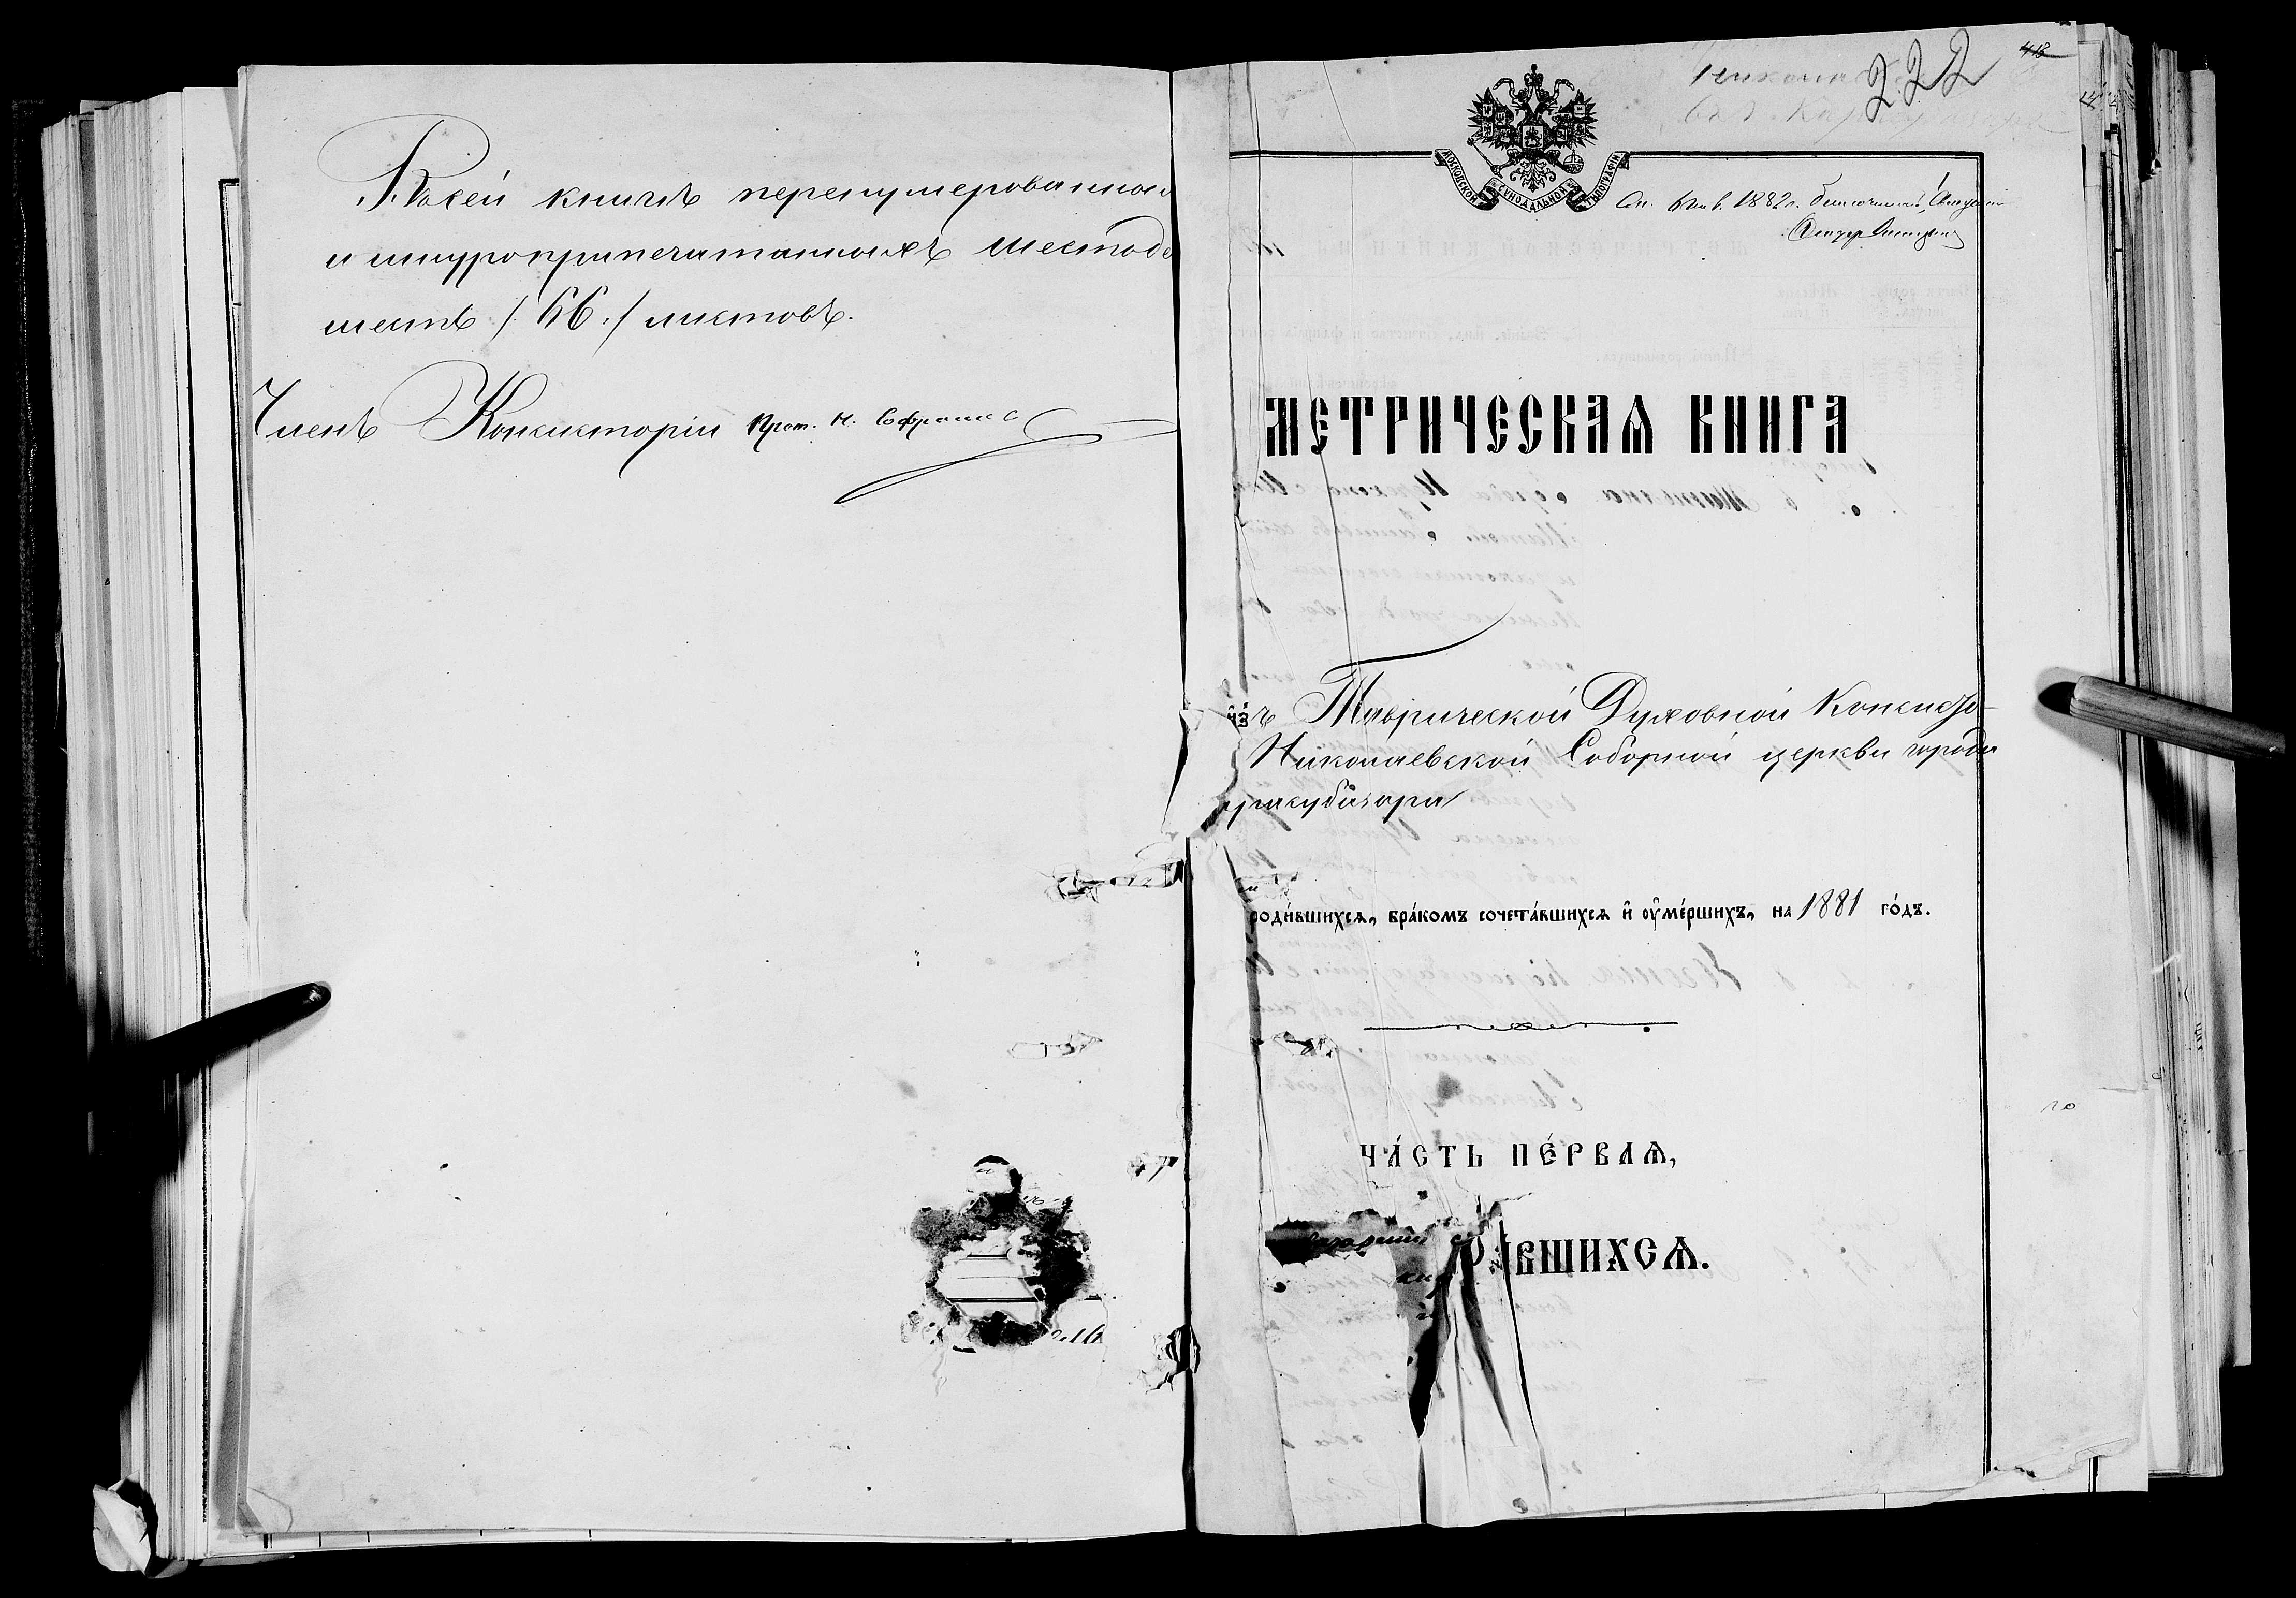 Въ сей книгѣ перенумерованныхъ
и шнуроприпечатанныхъ шестьде
шесть /66./ листовъ.
Членъ Консисторіи Прот. М.
222
МОСКОВСКОЙ СУНОДАЛЬНОЙ ТѴПОГРАФІИ
1882 г.
МЕТРИЧЕСКАѦ КНИГА
и҆зъ Таврической Духовной Консисто-
Николаевской Соборной церкви города
расубазара
роди́вшихсѧ, бра́комъ сочета́вшихсѧ и҆ ᲂу҆ме́ршихъ, на 1881 го́дъ.
ЧА́СТЬ ПЕ́РВАѦ,
ВШИХСѦ.